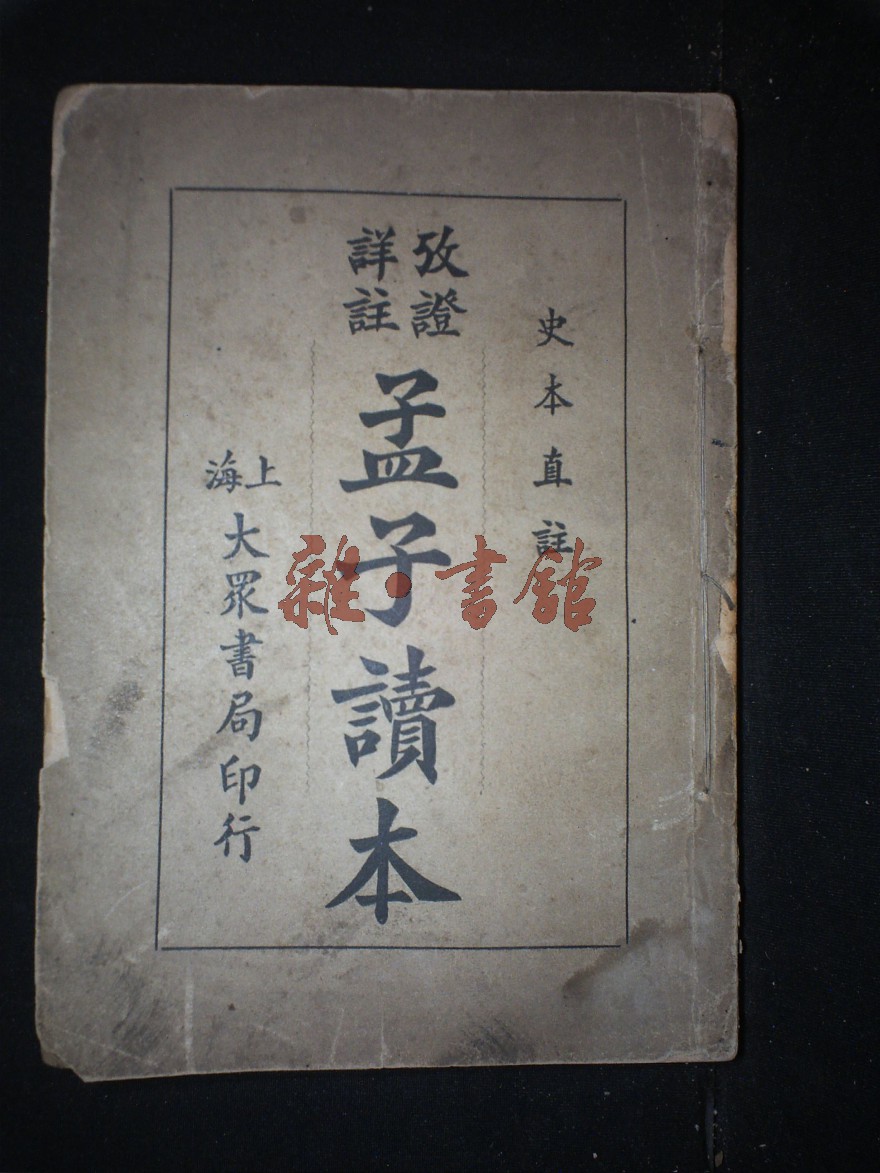 史本直註
攷證
詳註
孟子讀本
上海
大眾書局印行
雜·書館